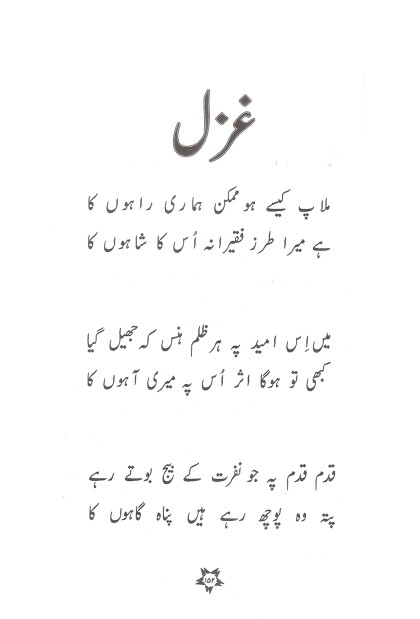 غزل
ملاپ کیسے ہو ممکن ہماری راہوں کا
ہے میرا طرز فقیرانہ اُس کا شاہوں کا
میں اِس امید پہ ہر ظلم ہنس کہ جھیل گیا
کبھی تو ہوگا اثر اُس پہ میری آہوں کا
قدم قدم پہ جو نفرت کے بیج بوتے رہے
پتہ وہ پوچھ رہے ہیں پناہ گاہوں کا
۱۵۲